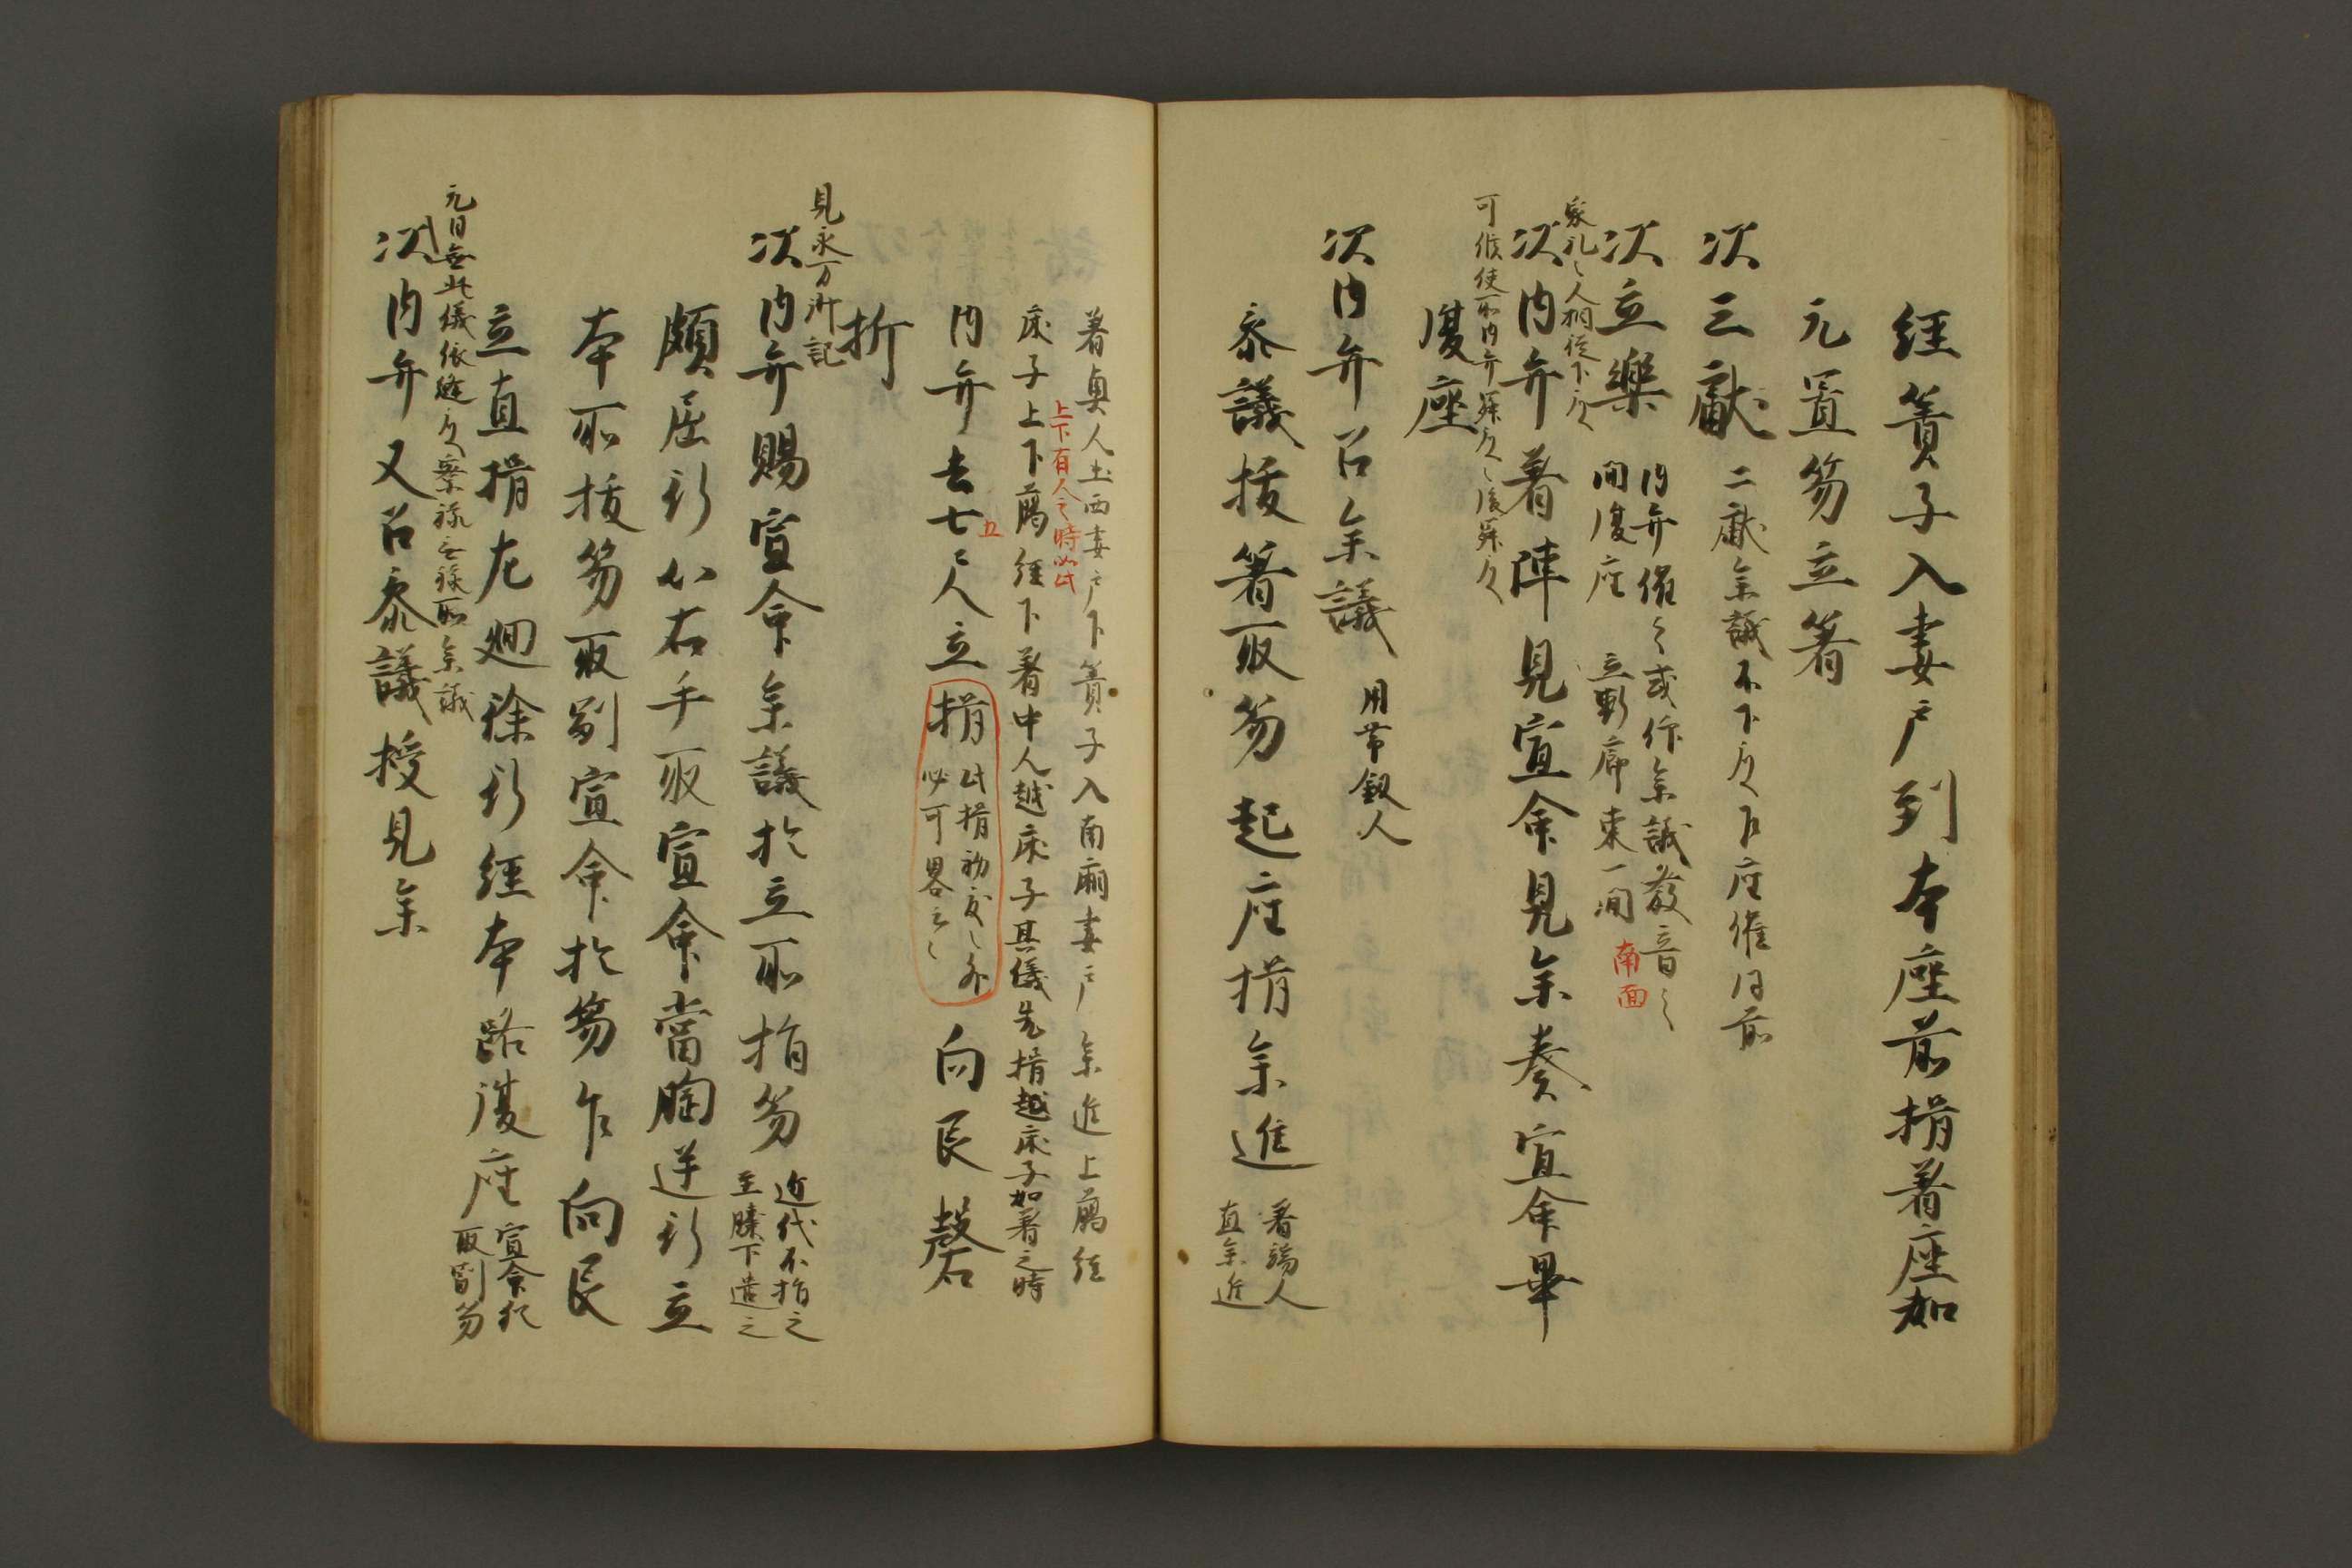 經簀子入妻戸到本座前揖着座如
元置笏立箸
次三献
二献参議不下殿下座催同前
次立樂
内弁催之或作参議發音之
間復座 立軒廊東一間 南面
家礼之人相従下殿
次内弁着陣見宣命見参奏宣命畢
可候便所内弁昇殿之後昇殿
復座
次内弁召参議 用帯釼人
参議抜箸取笏起座揖参進
着端人
直参進
着奥人出西妻戸下簀子入南廂妻戸参進上臈經
上下有人之時如此
床子上下臈經下着中人越床子其儀先揖越床子如着之時
内弁去七五尺立揖
此揖初度之外
必可畧之
向艮磬
折
見永万御記
次内弁賜宣命参議於立所指笏
近代不指之
至膝下造之
頗屈行以右手取宣命當胸逆行立
本所抜笏取副宣命於笏乍向艮
立直揖左廻徐行經本路復座
宣命
取副笏
元日無此儀依
次内弁又召参議授見参